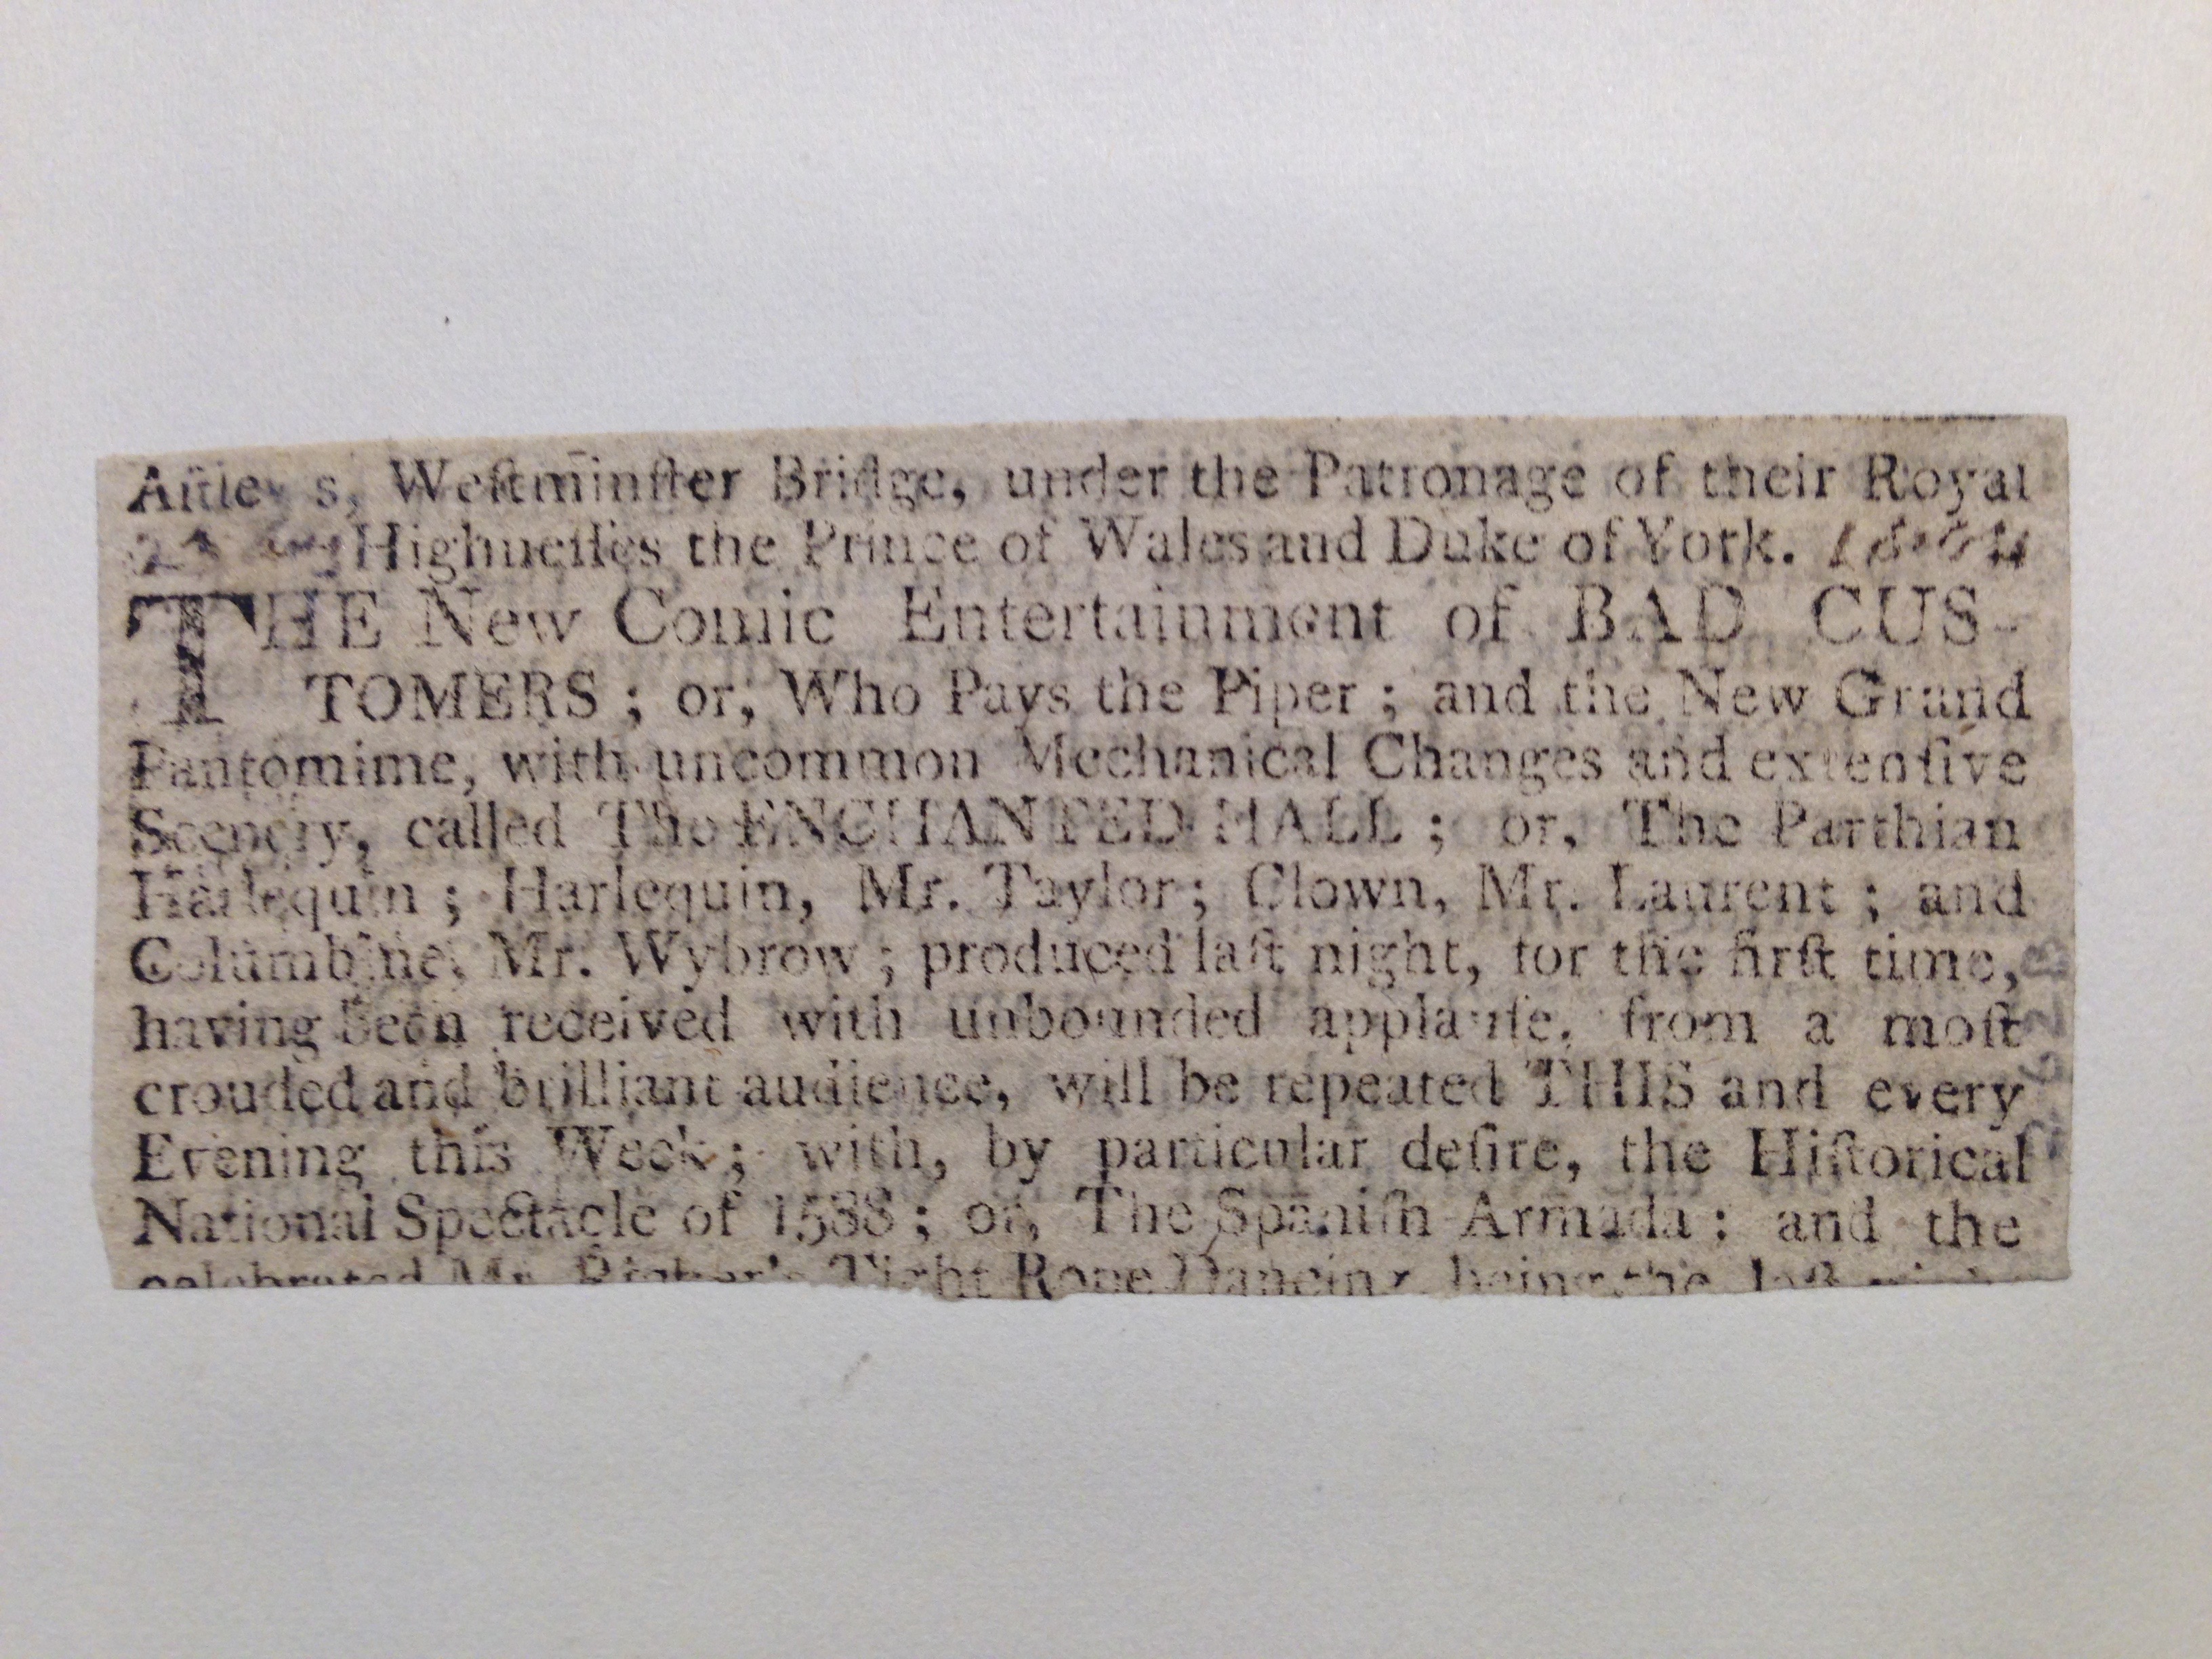 Aſtley's, Weſtminſter Bridge, under the Patronage of their Royal
Highneſſes the Prince of Wales and Duke of York. 1804
THE New Comic Entertainment of BAD CUS-
TOMERS ; or, Who Pays the Piper ; and the New Grand
Pantomime, with uncommon Mechanical Changes and extenſive
Scenery, called The ENCHANTED HALL ; or, The Parthian
Harlequin ; Harlequin, Mr. Taylor ; Clown, Mr. Laurent ; and
Columbine, Mr. Wybrow ; produced laſt night, for the firſt time,
having been received with unbounded applauſe, from a moſt
crouded and brilliant audience, will be repeated THIS and every
Evening this Week ; with, by particular deſire, the Hiſtorical
National Spectacle of 1588 ; or, The Spaniſh Armada : and the
celebrated Mr. Tight Rope Dancing, being the laſt